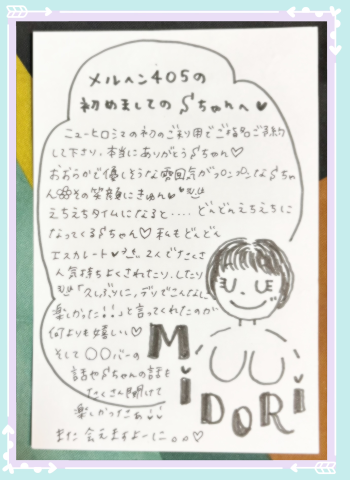 メルヘン405の
初めましてのSちゃんへ♥
ニューヒロシマの初のご利用でご指名ご予約
して下さり、本当にありがとうSちゃん♡
おおらかで優しそうな雰囲気がプンプンなSちゃ
んその笑顔にきゅん♥
えちえちタイムになると.... どんどんえちえちに
なってくるSちゃん♡私もどんどん
エスカレート♥ 2人でたくさ
ん気持ちよくされたり、したり
「久しぶりに、デリでこんなに
楽しかった!!」と言ってくれたのが
何よりも嬉しい♡
そして〇〇バーの
話やSちゃんの話も
たくさん聞けて
楽しかったぁ
また会えますよーに。。♡
MiDORi